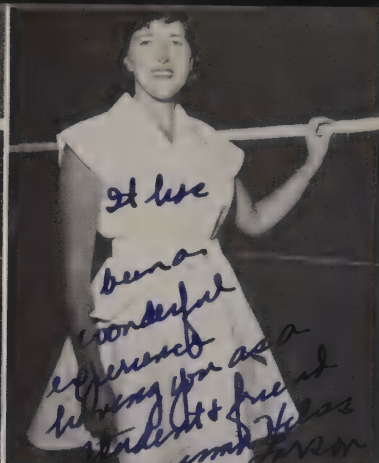 It has
been a
wonderful
experience
having you as a
student & friend